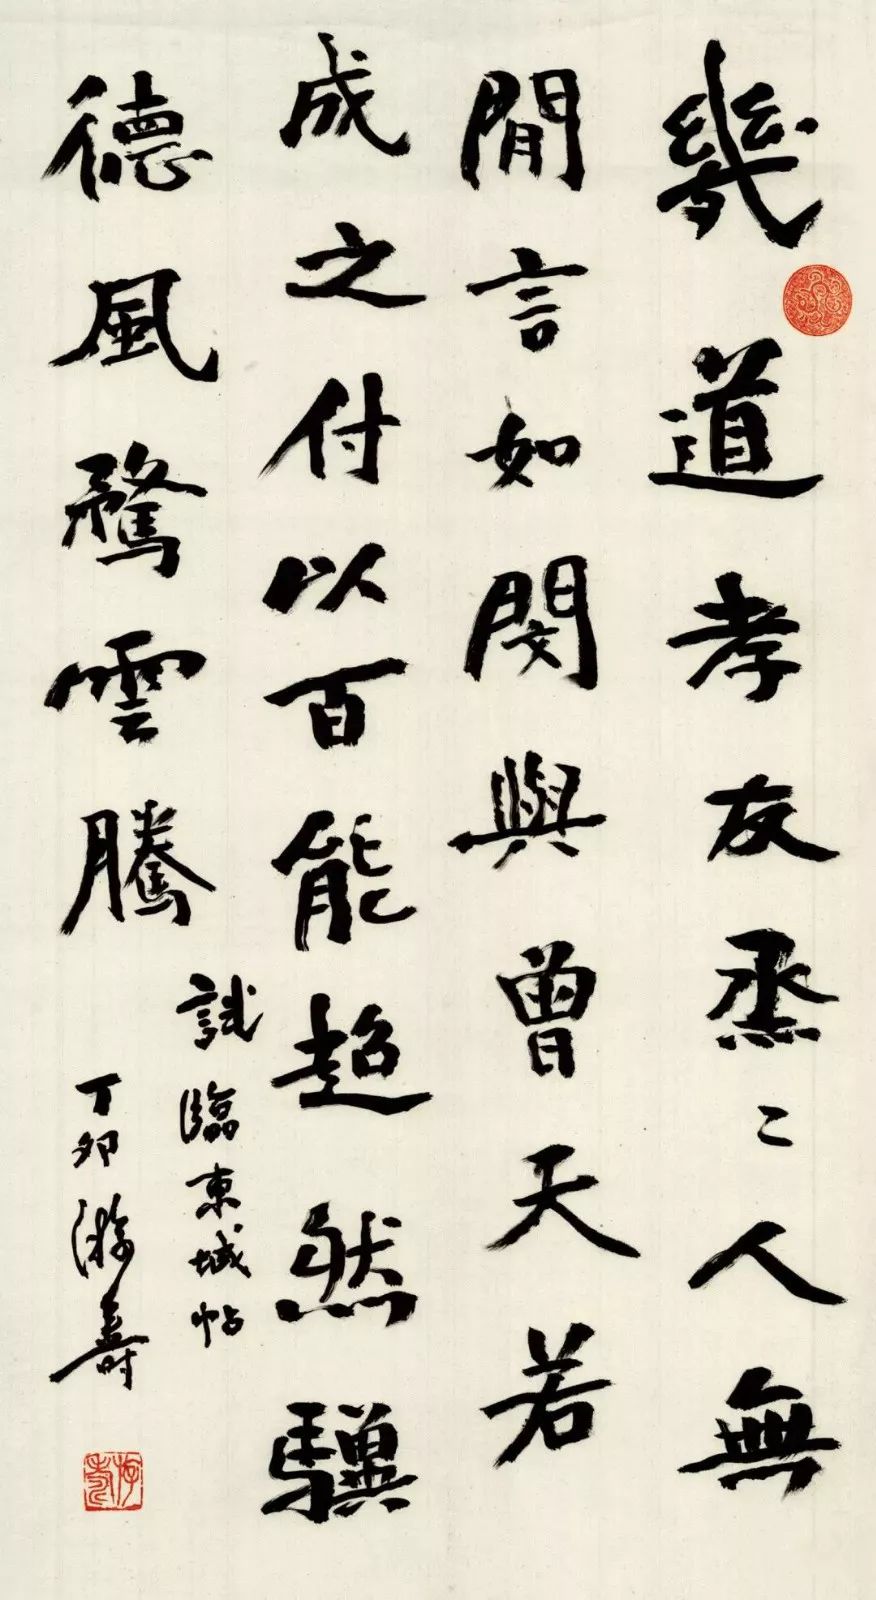 幾道孝友烝〻人無
閒言如閔與曾天若
成之付以百能超然驥
德風騖雲騰
試臨東坡帖
丁卯游壽
游壽